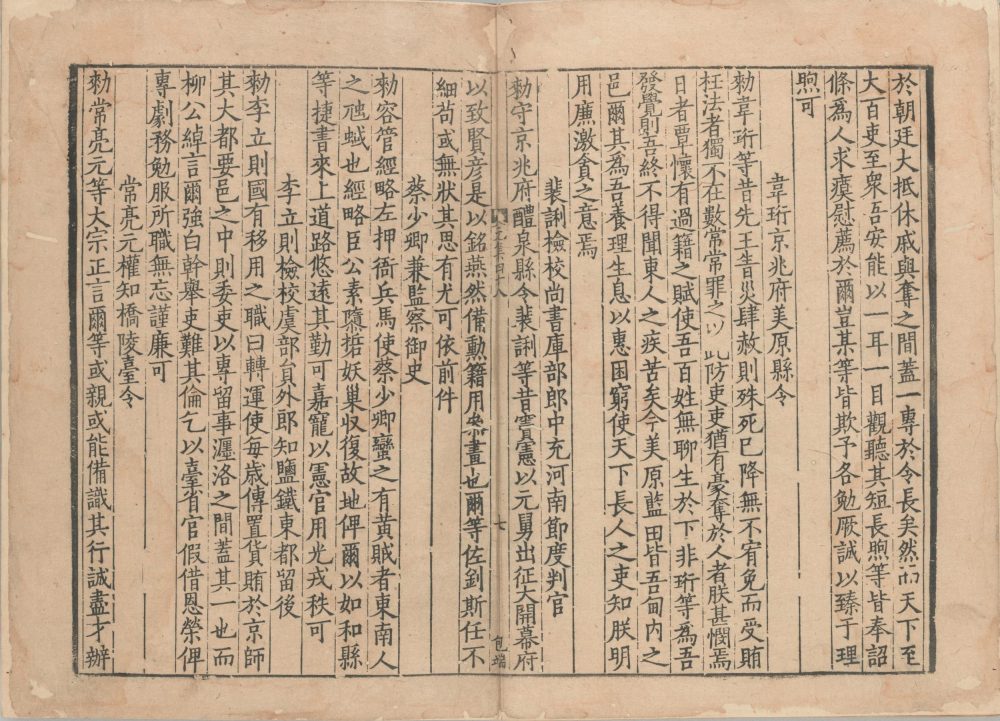 於朝廷大抵休戚與奪之間蓋一專於令長矣然而天下至
大百吏至衆吾安能以一耳一目觀聽其短長煦等皆奉詔
條爲人求瘼慰薦於爾豈某等皆欺予各勉厥誠以臻于理
煦可
韋珩京兆府美原縣令
勑韋珩等昔先王眚災肆赦則殊死已降無不宥免而受賄
枉法者獨不在數常常罪之以此防吏吏猶有豪奪於人者朕甚憫焉
日者覃懷有過籍之賦使吾百姓無聊生於下非珩等爲吾
發覺則吾終不得聞東人之疾苦矣今美原藍田皆吾甸內之
邑爾其爲吾養理生息以惠困窮使天下長人之吏知朕明
用廉激貪之意焉
裴誗檢校尚書庫部郎中充河南節度判官
勑守京兆府醴泉縣令裴誗等昔竇憲以元舅出征大開幕府
元集四十八
七
包端
以致賢彥是以銘燕然備勳籍用桒畫也爾等佐釗斯任不
細苟或無狀其思有尤可依前件
蔡少卿兼監察御史
勑容管經略左押衙兵馬使蔡少卿蠻之有黃賊者東南人
之虺蜮也經略臣公素隳掋妖巢収復故地俾爾以如和縣
等捷書來上道路悠遠其勤可嘉寵以憲官用光戎秩可
李立則檢校虞部員外郎知鹽鐵東都留後
勑李立則國有移用之職曰轉運使每歲傳置貨賄於京師
其大都要邑之中則委吏以專留事瀍洛之間蓋其一也而
柳公綽言爾強白幹舉吏難其倫乞以臺省官假借恩榮俾
專劇務勉服所職無忘謹廉可
常亮元權知橋陵臺令
勑常亮元等大宗正言爾等或親或能備識其行誠盡才辦